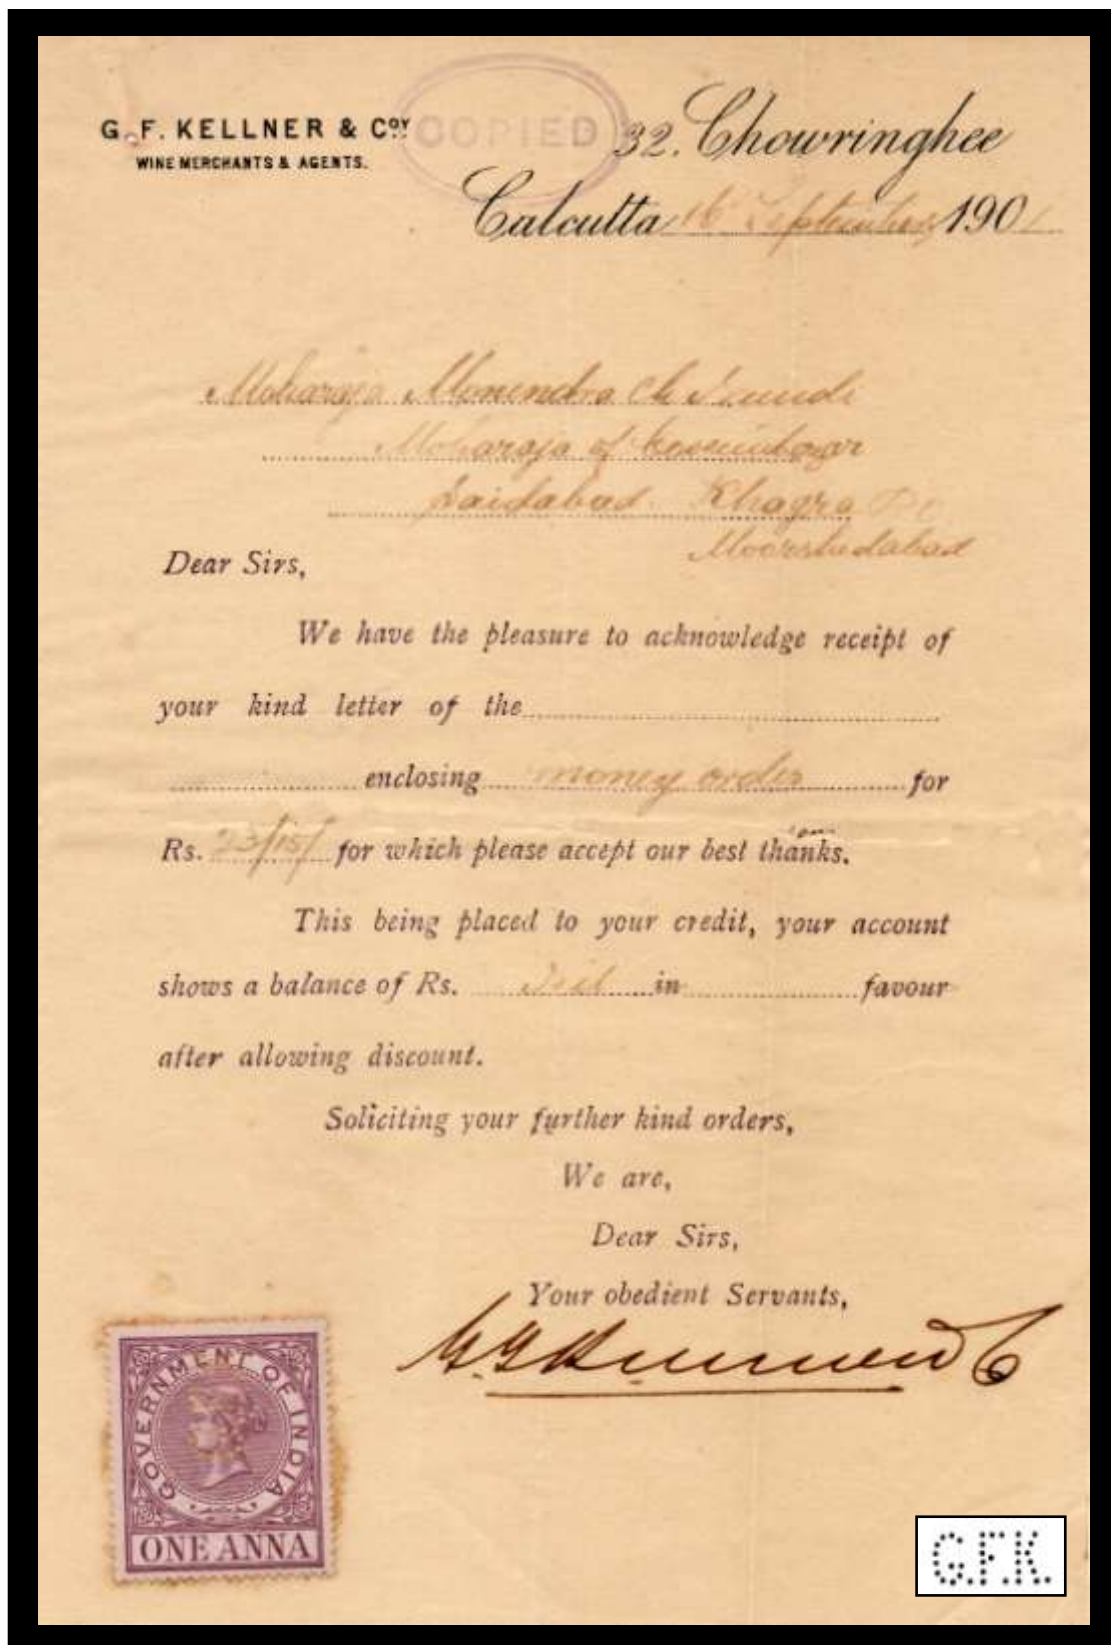 G. F. KELLNER & COY
WINE MERCHANTS & AGENTS.
COPIED
32. Chowringhee
Calcutta 16 September 1901
Moharaja Monendra Ch Naundi
Moharaja of Cossimbazar
Saidabad Khagra P.O
Moorshedabad
Dear Sirs,
We have the pleasure to acknowledge receipt of
your kind letter of the
enclosing money order for
Rs. 23/15/ for which please accept our best thanks.
This being placed to your credit, your account
shows a balance of Rs. Nil in favour
after allowing discount.
Soliciting your further kind orders,
We are,
Dear Sirs,
Your obedient Servants,
GOVERNMENT OF INDIA
ONE ANNA
G.F.K.